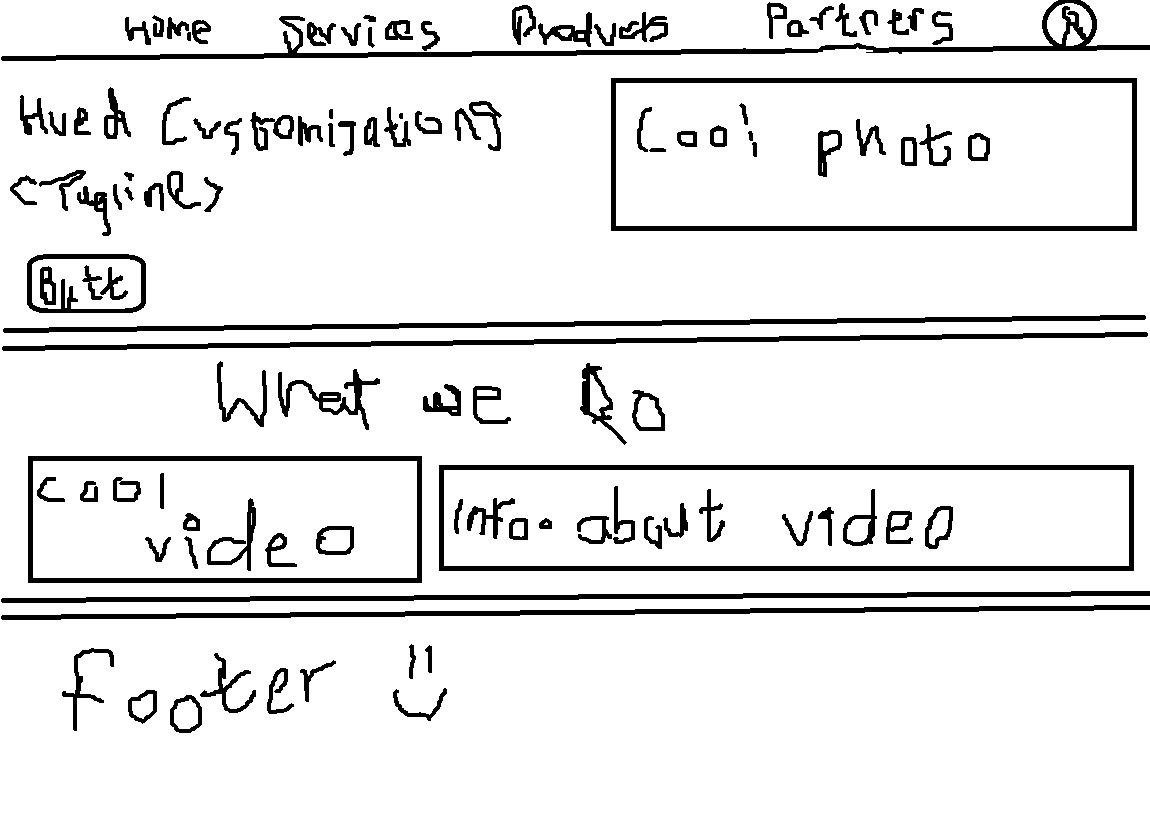 Home Services Products Partners
Hued Customization
<Tagline>
Cool photo
Butt
What we do
cool
video
info. about video
footer